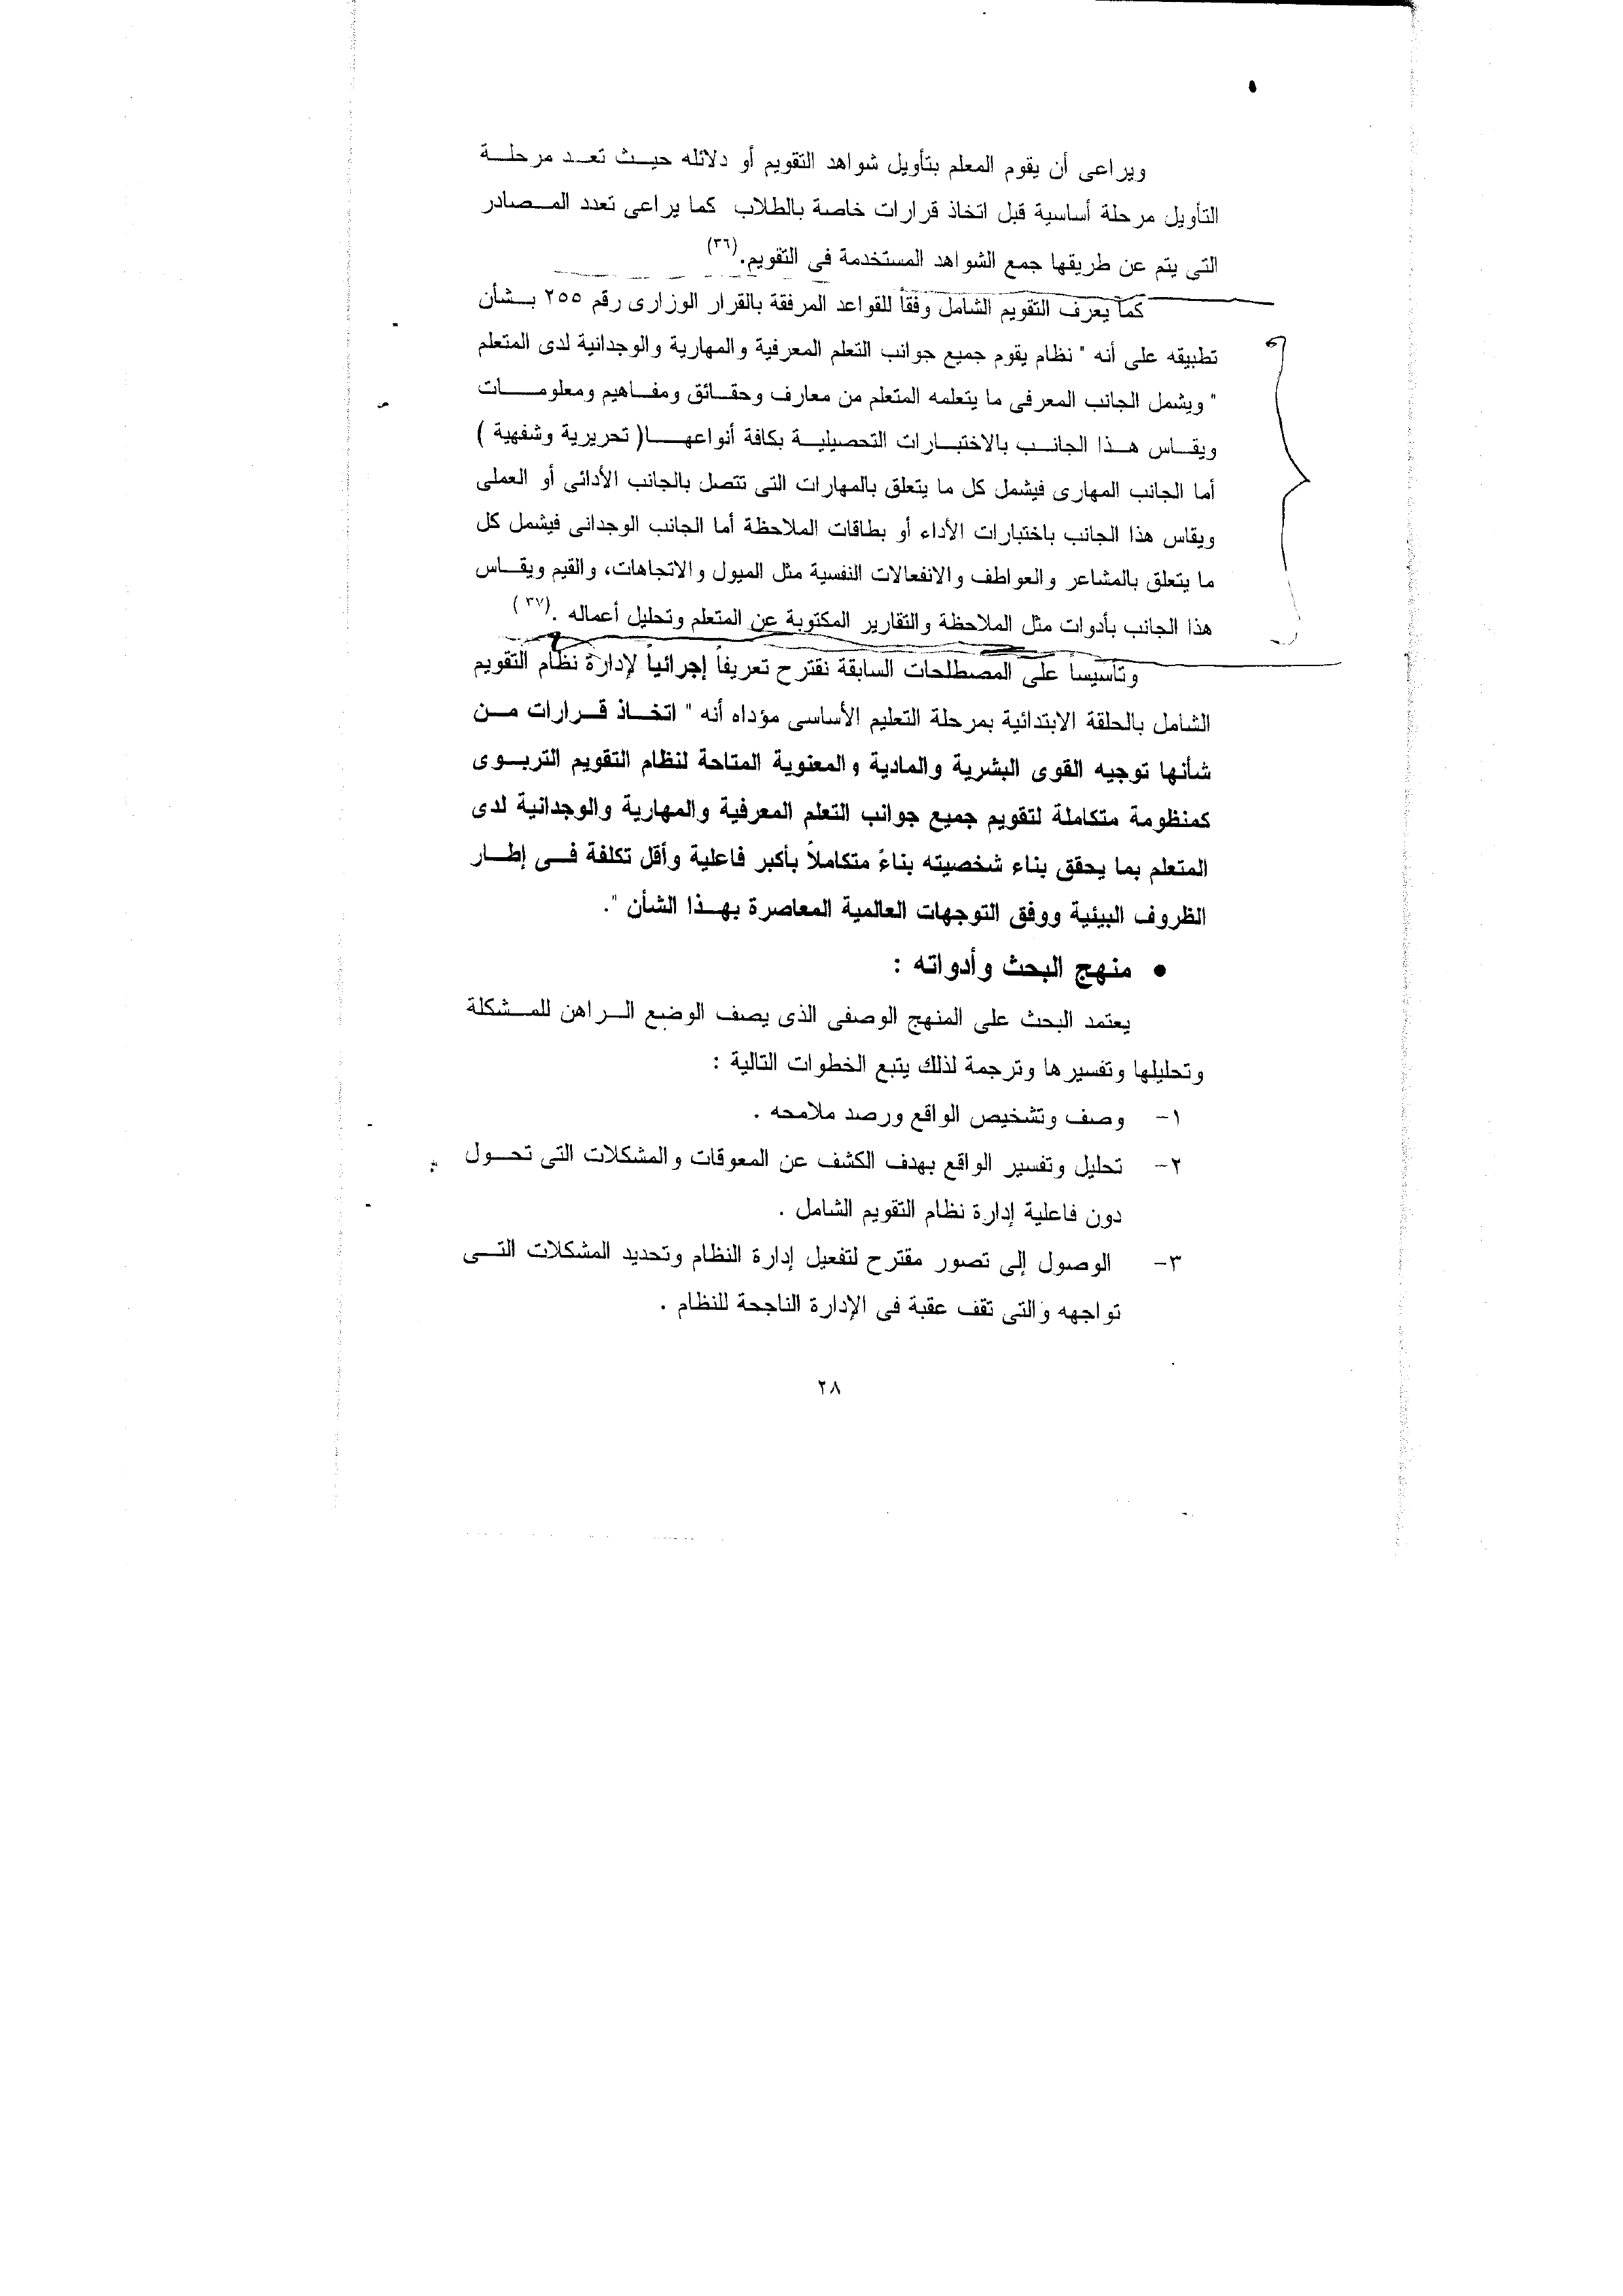 ويراعى أن يقوم المعلم بتأويل شواهد التقويم أو دلائله حيث تعد مرحلة
التأويل مرحلة أساسية قبل اتخاذ قرارات خاصة بالطلاب كما يراعى تعدد المصادر
التى يتم عن طريقها جمع الشواهد المستخدمة فى التقويم.(٣٦)
كما يعرف التقويم الشامل وفقاً للقواعد المرفقة بالقرار الوزارى رقم ٢٥٥ بشأن
تطبيقه على أنه " نظام يقوم جميع جوانب التعلم المعرفية والمهارية والوجدانية لدى المتعلم
" ويشمل الجانب المعرفى ما يتعلمه المتعلم من معارف وحقائق ومفاهيم ومعلومات
ويقاس هذا الجانب بالاختبارات التحصيلية بكافة أنواعها( تحريرية وشفهية )
أما الجانب المهارى فيشمل كل ما يتعلق بالمهارات التى تتصل بالجانب الأدائى أو العملى
ويقاس هذا الجانب باختبارات الأداء أو بطاقات الملاحظة أما الجانب الوجدانى فيشمل كل
ما يتعلق بالمشاعر والعواطف والانفعالات النفسية مثل الميول والاتجاهات، والقيم ويقاس
هذا الجانب بأدوات مثل الملاحظة والتقارير المكتوبة عن المتعلم وتحليل أعماله .(٣٧)
وتأسيساً على المصطلحات السابقة نقترح تعريفاً إجرائياً لإدارة نظام التقويم
الشامل بالحلقة الابتدائية بمرحلة التعليم الأساسى مؤداه أنه " اتخاذ قرارات من
شأنها توجيه القوى البشرية والمادية والمعنوية المتاحة لنظام التقويم التربوى
كمنظومة متكاملة لتقويم جميع جوانب التعلم المعرفية والمهارية والوجدانية لدى
المتعلم بما يحقق بناء شخصيته بناءً متكاملاً بأكبر فاعلية وأقل تكلفة فى إطار
الظروف البيئية ووفق التوجهات العالمية المعاصرة بهذا الشأن ".
• منهج البحث وأدواته :
يعتمد البحث على المنهج الوصفى الذى يصف الوضع الراهن للمشكلة
وتحليلها وتفسيرها وترجمة لذلك يتبع الخطوات التالية :
١- وصف وتشخيص الواقع ورصد ملامحه .
٢- تحليل وتفسير الواقع بهدف الكشف عن المعوقات والمشكلات التى تحول
دون فاعلية إدارة نظام التقويم الشامل .
٣- الوصول إلى تصور مقترح لتفعيل إدارة النظام وتحديد المشكلات التى
تواجهه والتى تقف عقبة فى الإدارة الناجحة للنظام .
٢٨